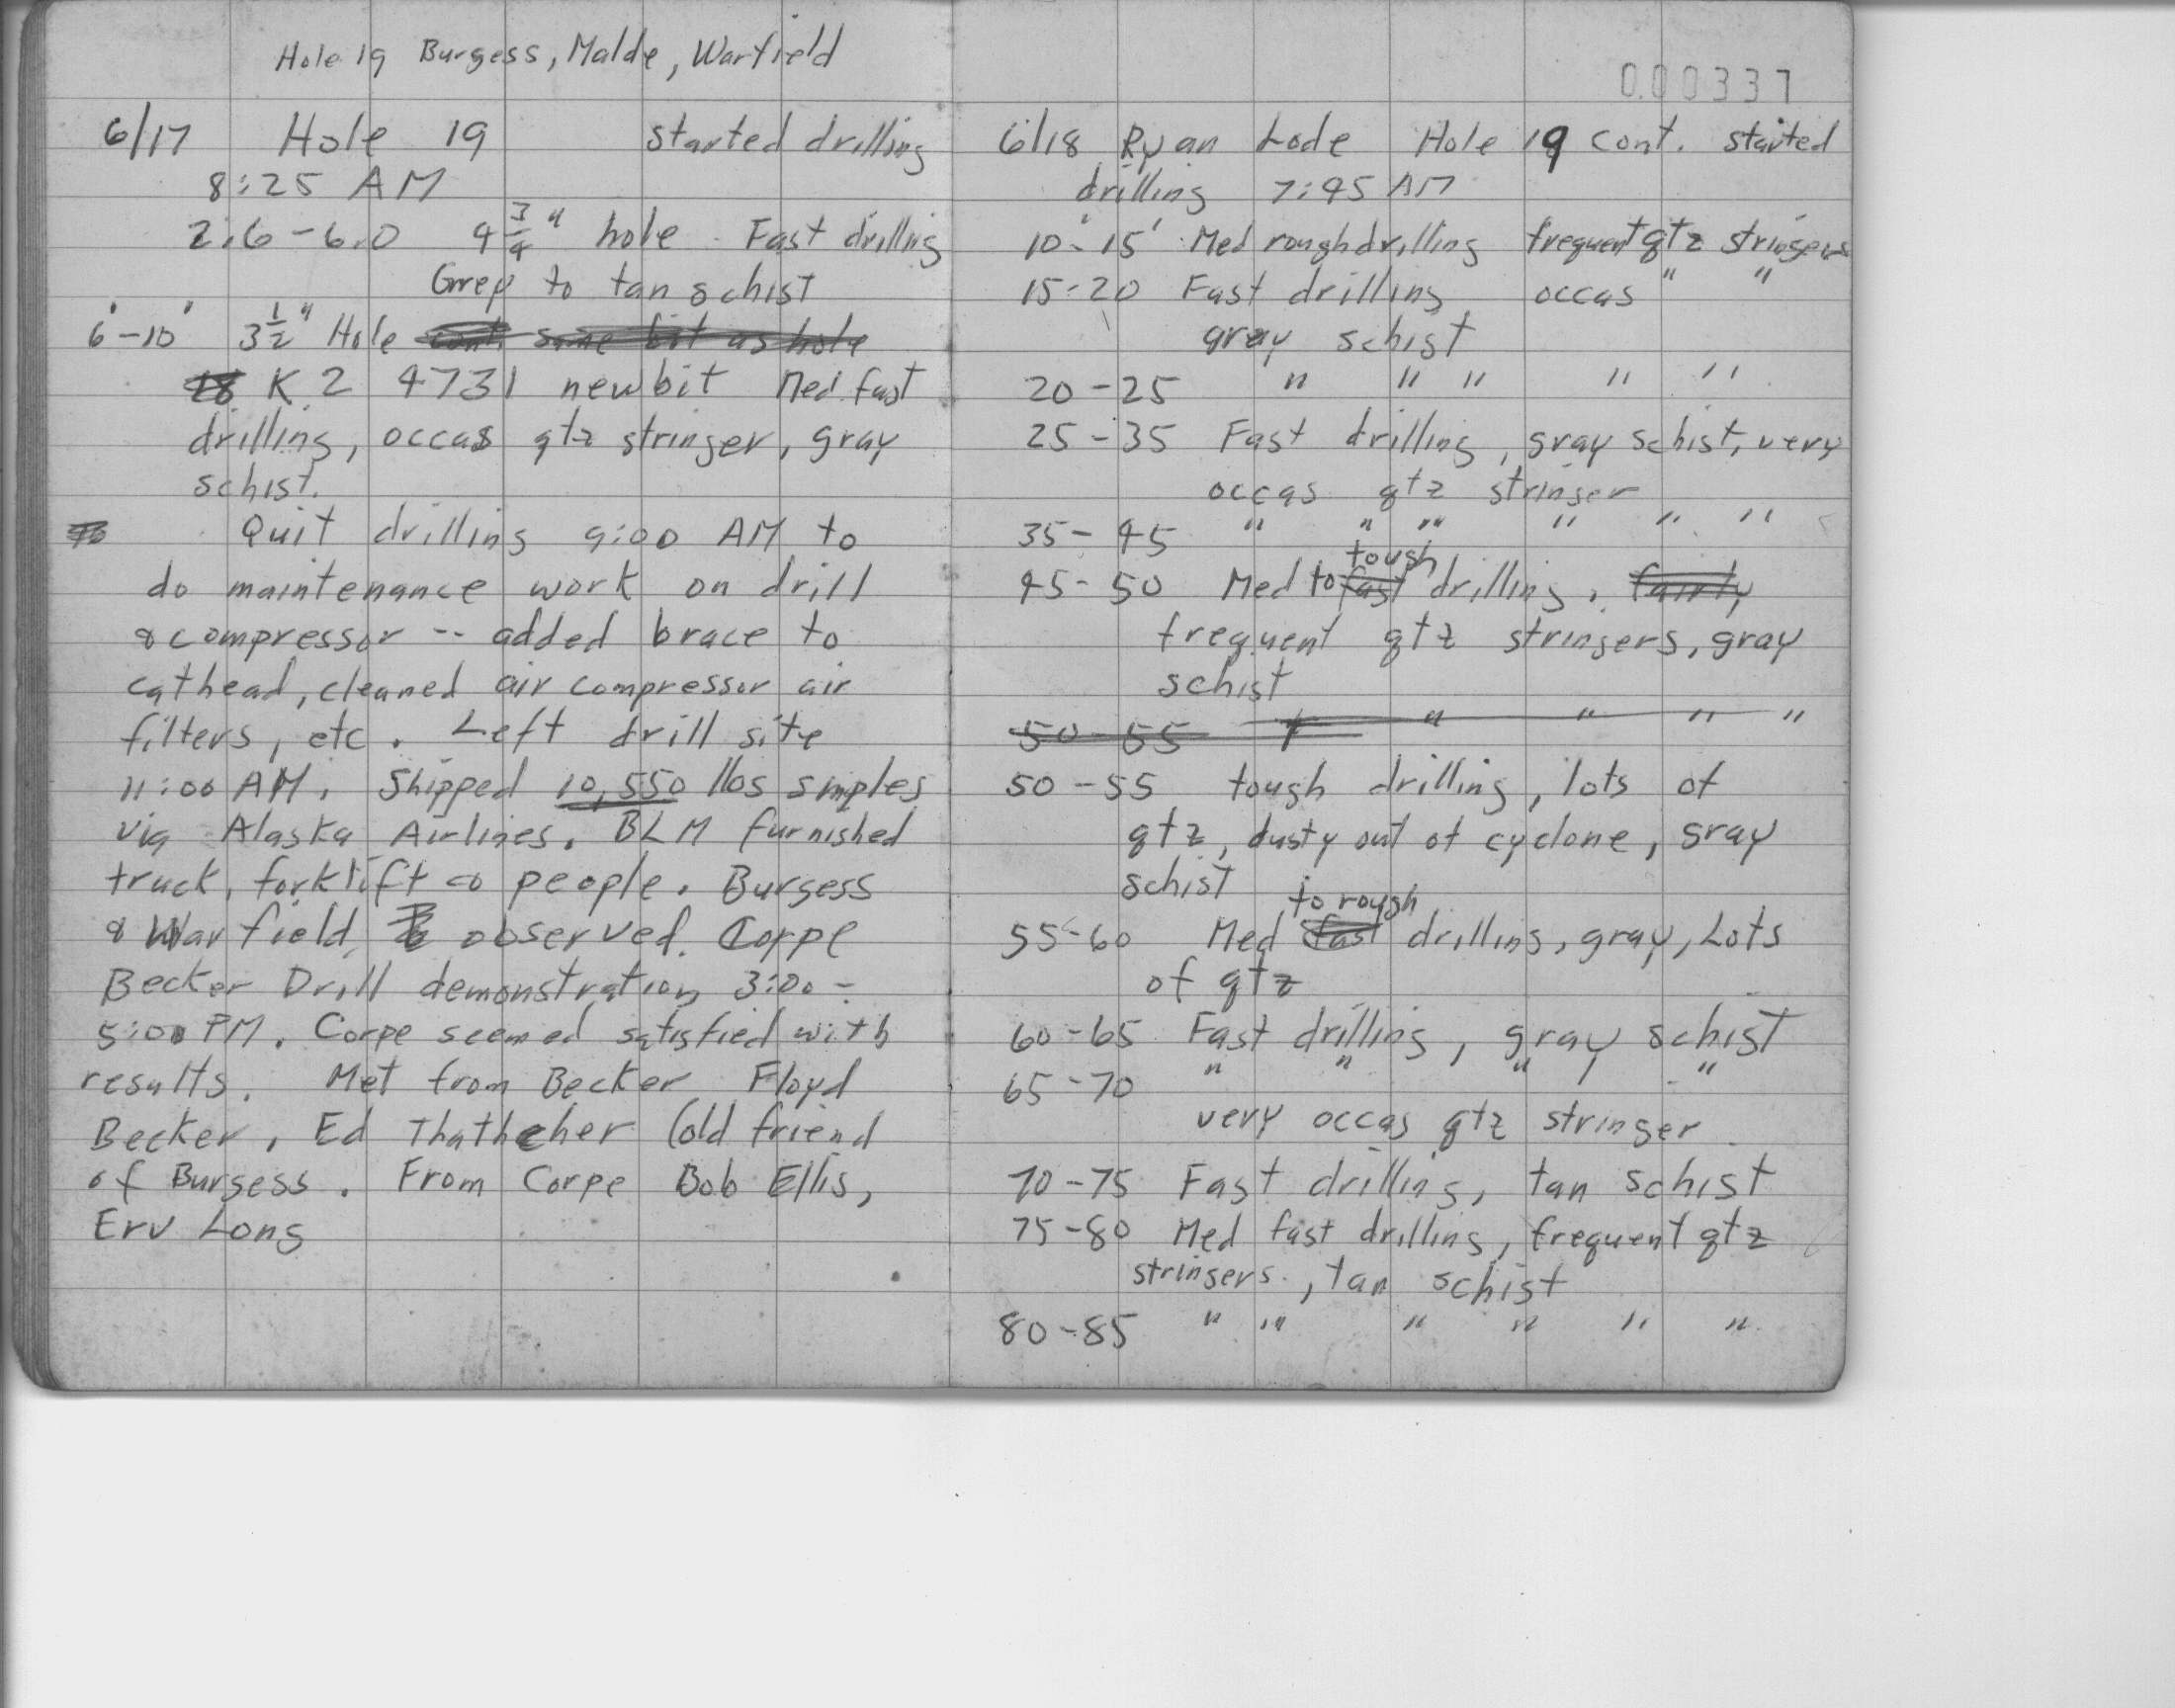 Hole 19 Burgess, Malde, Warfield
6/17 Hole 19 started drilling
8:25 AM
2.6-6.0 4 3/4" hole Fast drilling
Grey to tan schist
6'-10' 3 1/2" Hole cont. same bit as hole
18 K 2 4731 new bit Med fast
drilling, occas qtz stringer, gray
schist.
Quit drilling 9:00 AM to
do maintenance work on drill
& compressor -- added brace to
cathead, cleaned air compressor air
filters, etc. Left drill site
11:00 AM. Shipped 10,550 lbs smples
via Alaska Airlines. BLM furnished
truck, forklift & people. Burgess
& Warfield observed. Corpe
Becker Drill demonstration 3:00-
5:00 PM. Corpe seemed satisfied with
results. Met from Becker Floyd
Becker, Ed Thathcher (old friend
of Burgess. From Corpe Bob Ellis,
Erv Long
000337
6/18 Ryan Lode Hole 19 cont. started
drilling 7:45 AM
10'-15' Med rough drilling frequent qtz stringers
15-20 Fast drilling occas " "
gray schist
20-25 " " " " "
25-35 Fast drilling, gray schist, very
occas qtz stringer
35-45 " " " " " "
tough
45-50 Med to fast drilling, fairly
frequent qtz stringers, gray
schist
50-55 " " " " "
50-55 tough drilling, lots of
qtz, dusty out of cyclone, gray
schist
to rough
55-60 Med fast drilling, gray, Lots
of qtz
60-65 Fast drilling, gray schist
65-70 " " " "
very occas qtz stringer
70-75 Fast drilling, tan schist
75-80 Med fast drilling, frequent qtz
stringers, tan schist
80-85 " " " " " "